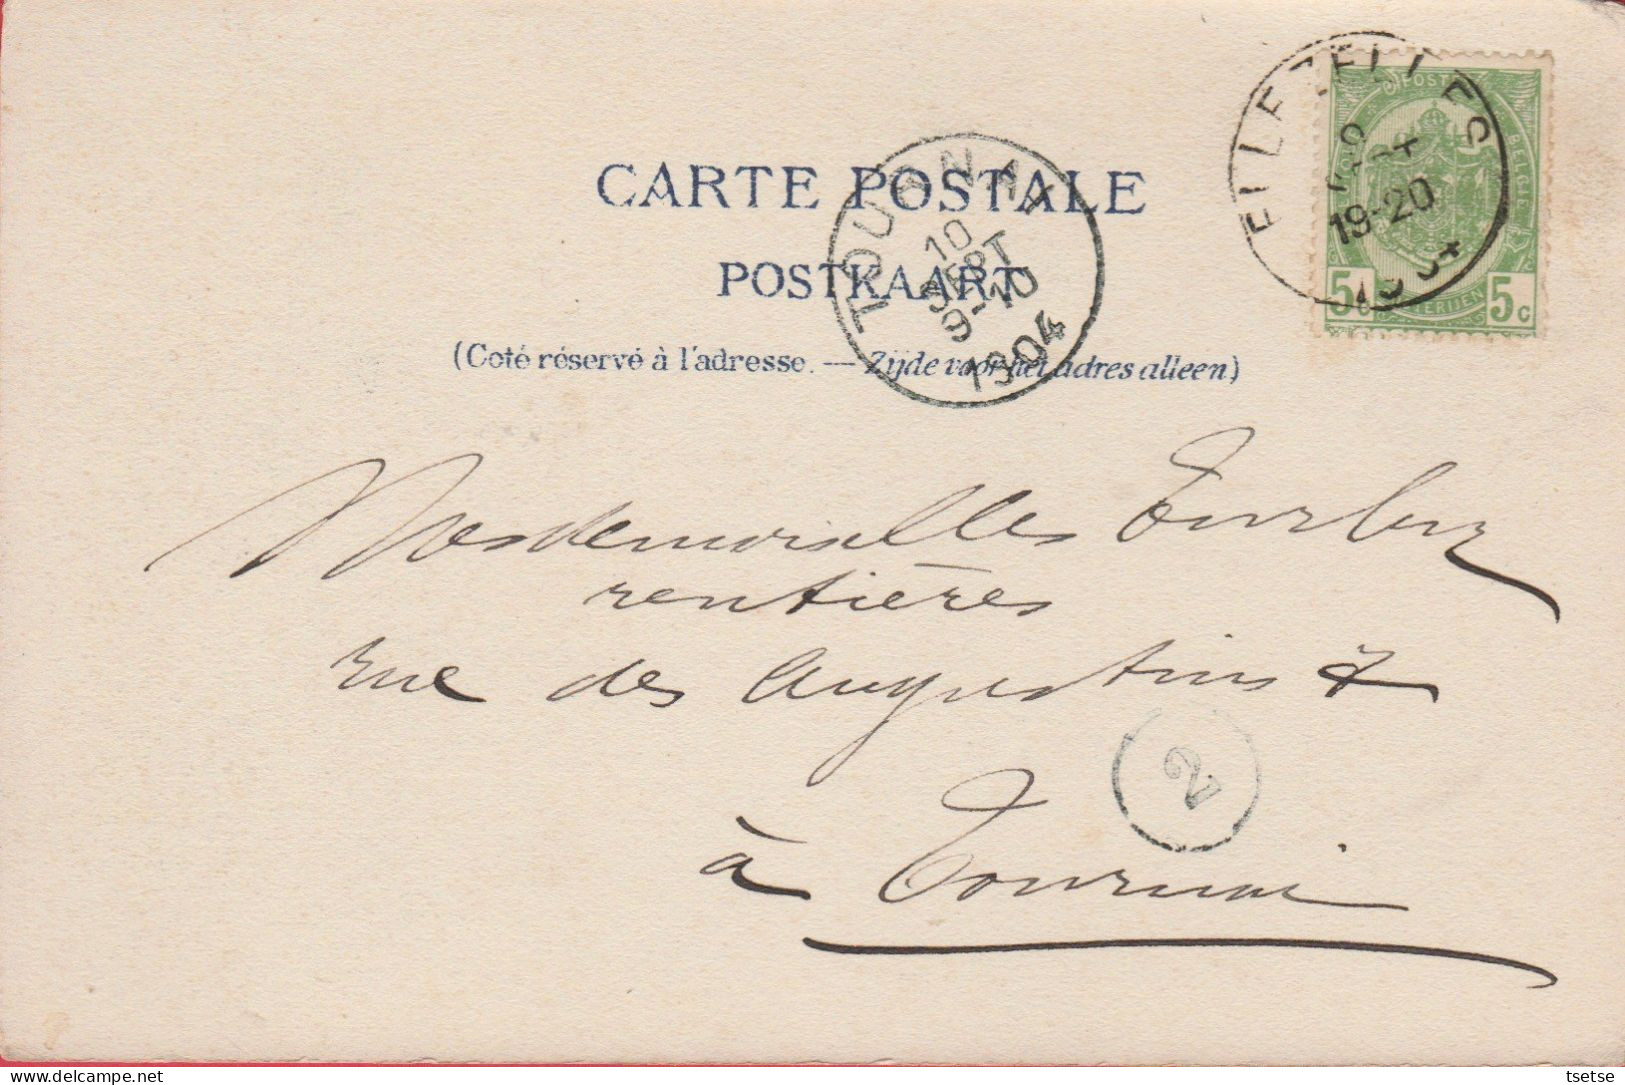 CARTE POSTALE
POSTKAART
(Coté réservé à l'adresse. — Zijde voor het adres alleen)
ELLEZELLES
19-20
POSTES
BELGIQUE
5c 5c
TOURNAI
10
SEPT
9-10
1904
Mesdemoiselles
rentières
rue des Augustins 7
2
à Tournai
tsetse